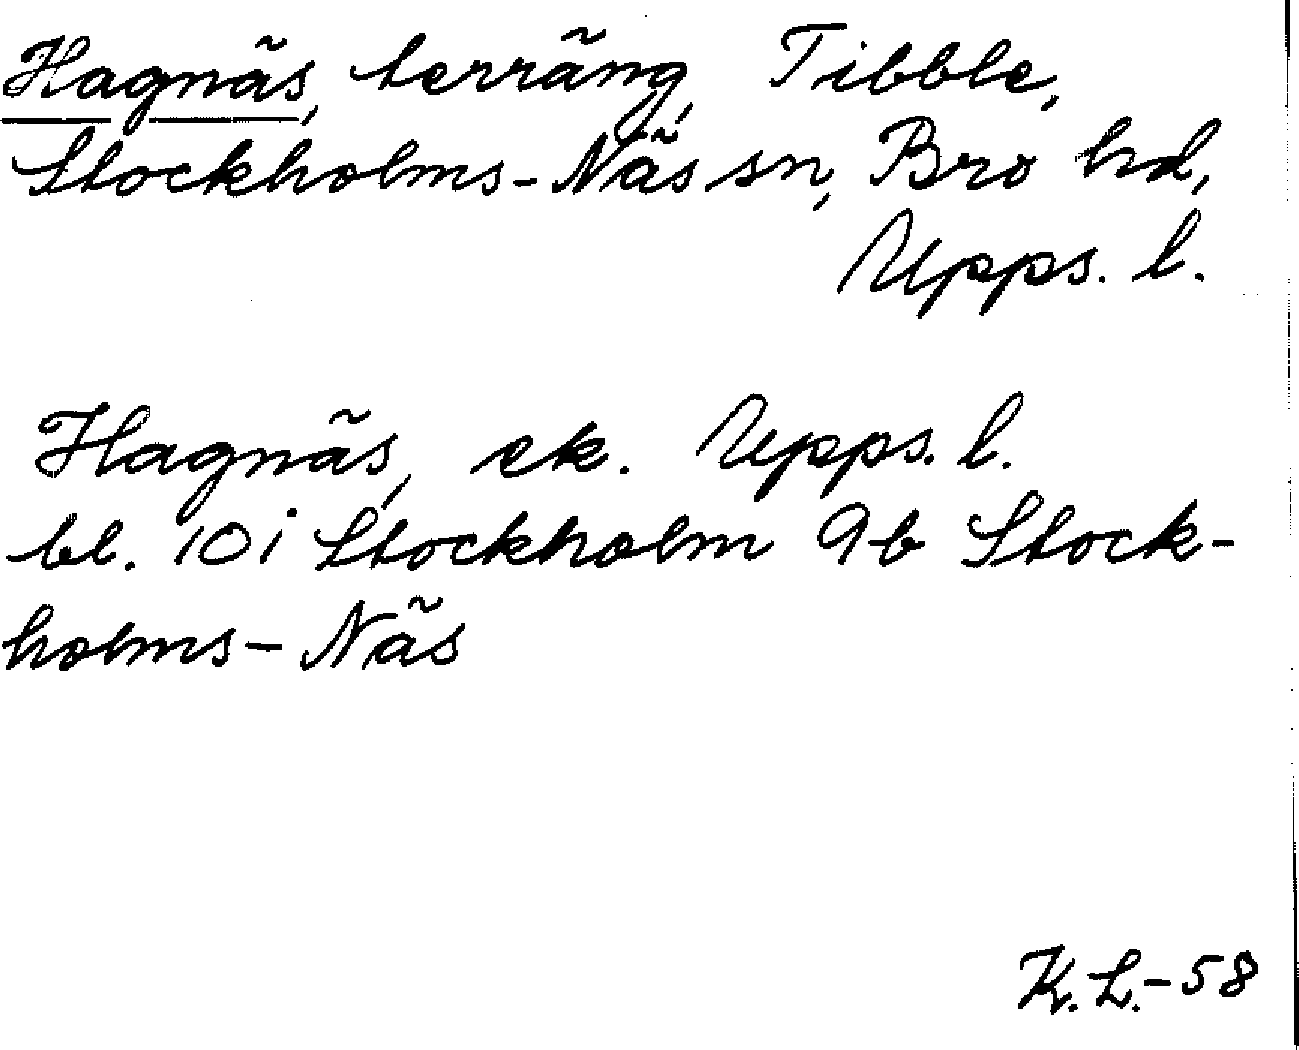 Hagnäs, terräng, Tibble,
Stockholms-Näs sn, Bro hd,
Upps. l.
Hagnäs, ek. Upps. l.
bl. 10 i Stockholm 9b Stock-
holms-Näs
K.L.-58